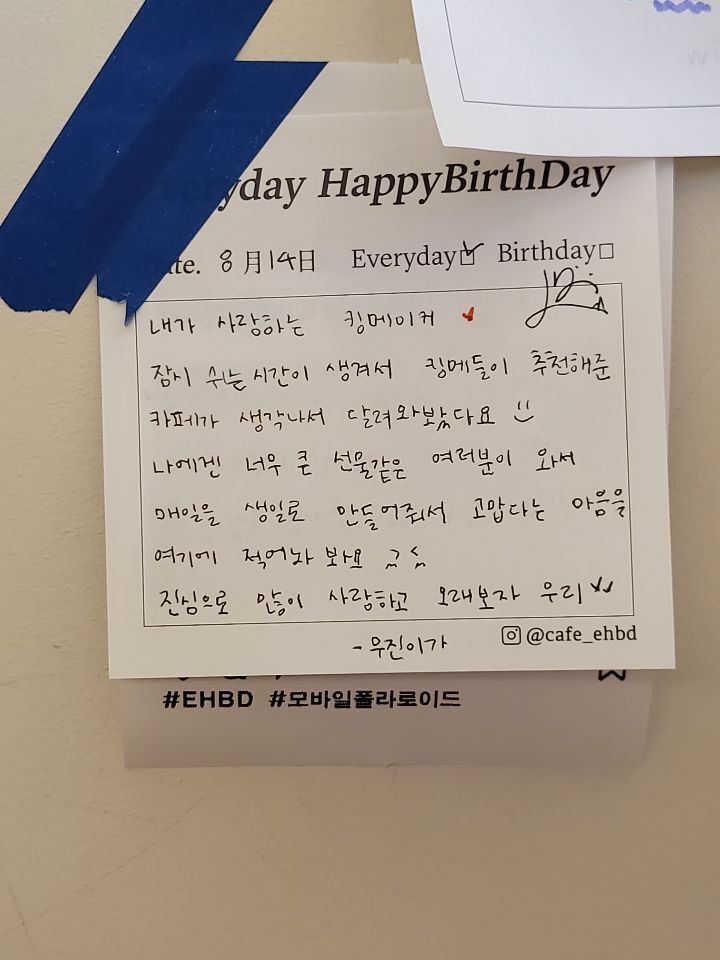 yday HappyBirthDay
te. 8月14日 Everyday☑ Birthday☐
내가 사랑하는 킹메이커
잠시 쉬는 시간이 생겨서 킹메들이 추천해준
카페가 생각나서 달려와봤다요
나에겐 너무 큰 선물같은 여러분이 와서
매일을 생일로 만들어줘서 고맙다는 마음을
여기에 적어놔 봐요
진심으로 많이 사랑하고 오래보자 우리
- 우진이가
@cafe_ehbd
#EHBD #모바일폴라로이드